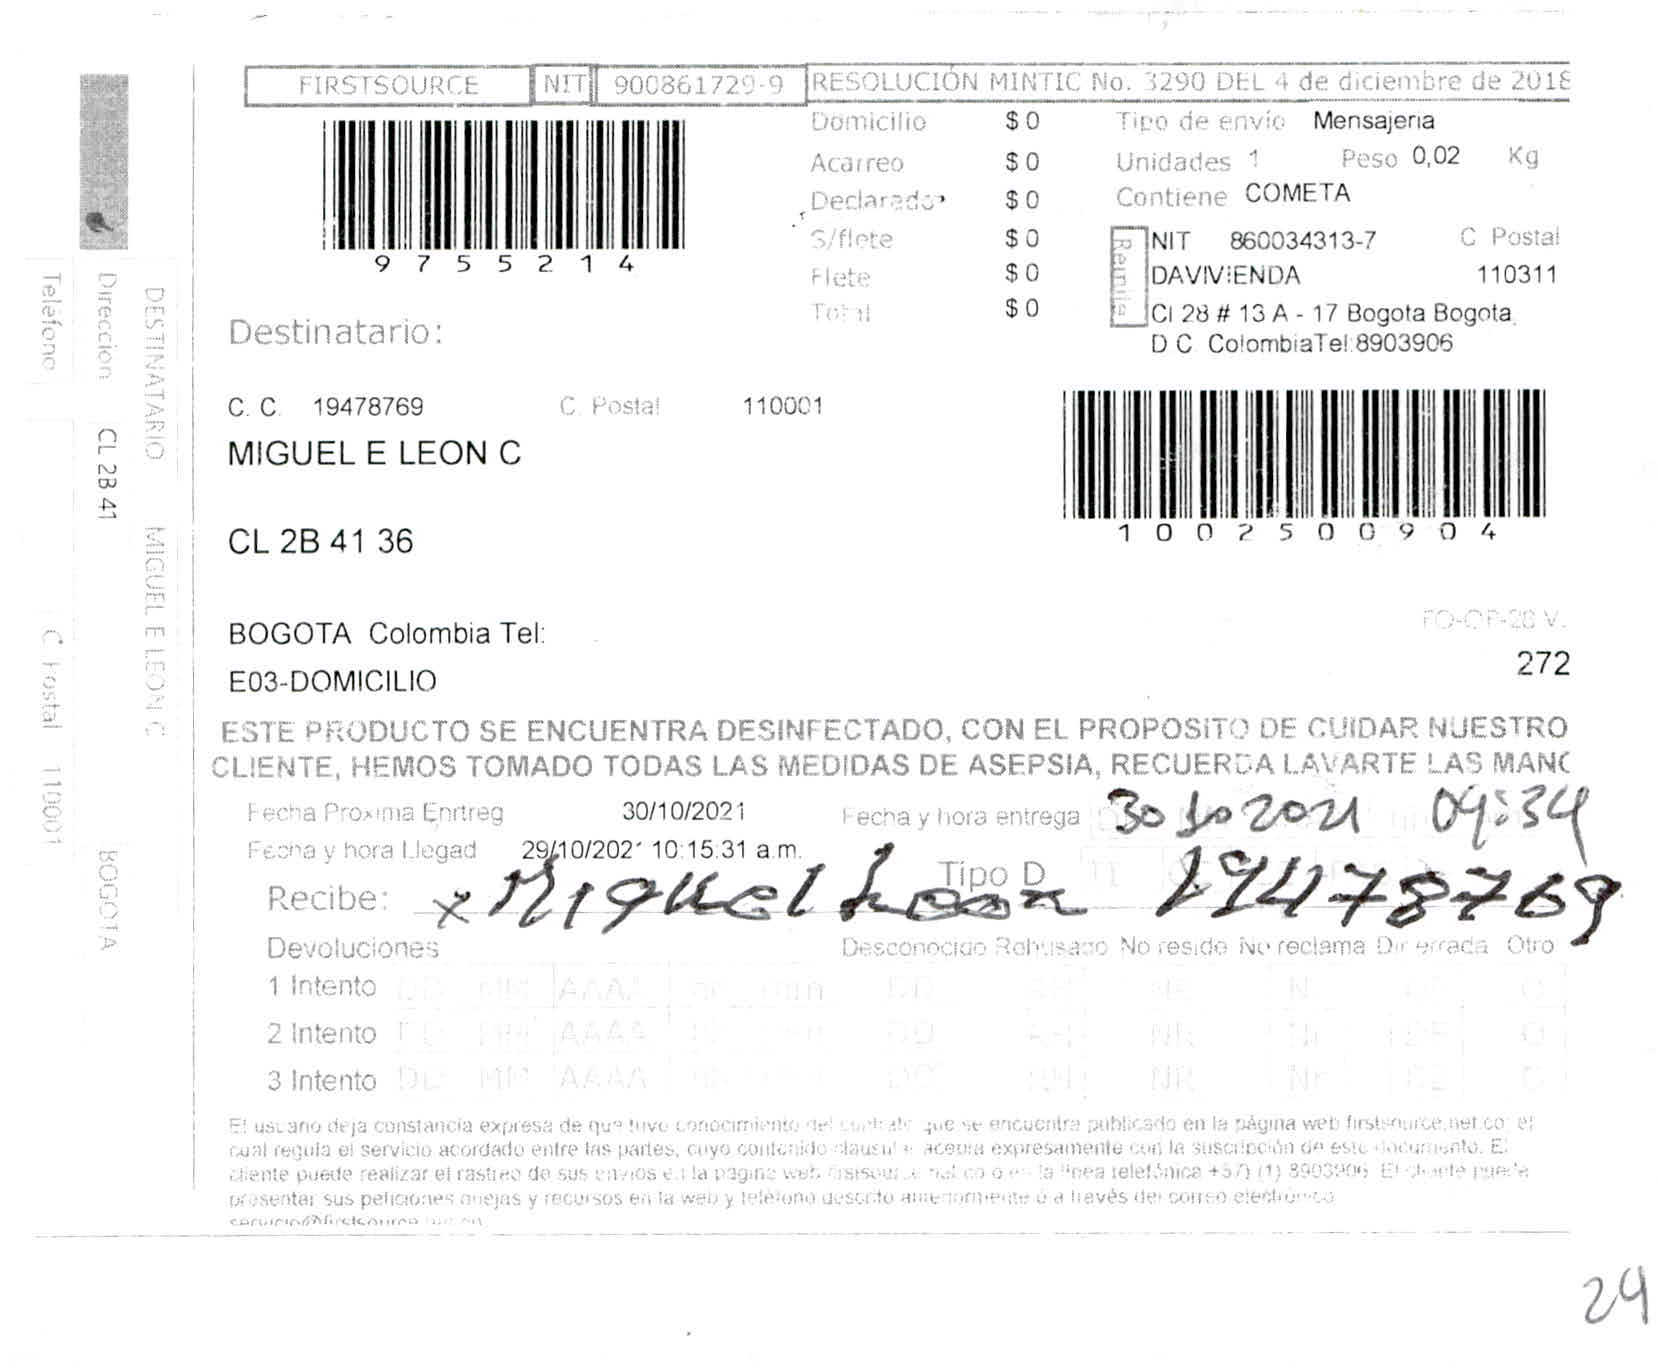 FIRSTSOURCE NIT 900861729-9 RESOLUCIÓN MINTIC No. 3290 DEL 4 de diciembre de 2018
9 7 5 5 2 1 4
Domicilio $ 0
Acarreo $ 0
Declarado $ 0
S/flete $ 0
Flete $ 0
Total $ 0
Tipo de envío Mensajeria
Unidades 1 Peso 0,02 Kg
Contiene COMETA
Remite
NIT 860034313-7 C Postal
DAVIVIENDA 110311
Cl 28 # 13 A - 17 Bogota Bogota
D C ColombiaTel:8903906
1 0 0 2 5 0 0 9 0 4
Destinatario:
C. C. 19478769 C. Postal 110001
MIGUEL E LEON C
CL 2B 41 36
BOGOTA Colombia Tel:
E03-DOMICILIO
FO-OP-28 V.
272
ESTE PRODUCTO SE ENCUENTRA DESINFECTADO, CON EL PROPOSITO DE CUIDAR NUESTRO
CLIENTE, HEMOS TOMADO TODAS LAS MEDIDAS DE ASEPSIA, RECUERDA LAVARTE LAS MANC
Fecha Proxima Enrtreg 30/10/2021 Fecha y hora entrega 30 10 2021 09:34
Fecha y hora Llegad 29/10/2021 10:15:31 a.m.
Tipo D
Recibe: x Miguel Leon 19478769
Devoluciones Desconocido Rehusado No reside No reclama Dir errada Otro
1 Intento DD MM AAAA
2 Intento DD MM AAAA
3 Intento DD MM AAAA
El usuario deja constancia expresa de que tuvo conocimiento del contrato que se encuentra publicado en la página web firstsource.net.co; el
cual regula el servicio acordado entre las partes, cuyo contenido clausul acepta expresamente con la suscripción de este documento. El
cliente puede realizar el rastreo de sus envios en la pagina web o en la linea telefónica +57) (1) 8903906 El cliente puede
presentar sus peticiones quejas y recursos en la web y teléfono descrito anteriormente ó a través del correo electrónico
DESTINATARIO MIGUEL E LEON C
Direccion CL 2B 41 BOGOTA
Teléfono C Postal 110001
24